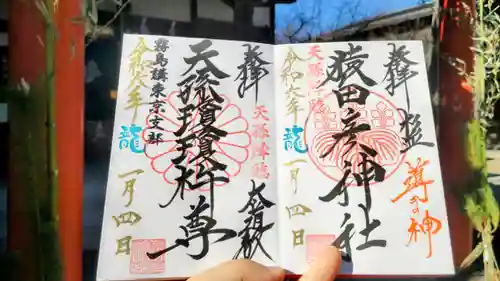 奉拝
猿田彦神社
天孫降臨
令和六年
龍
一月四日
導きの神
奉拝
天孫降臨
大前
天孫瓊瓊杵尊
霧島講東京支部
令和六年
龍
一月四日